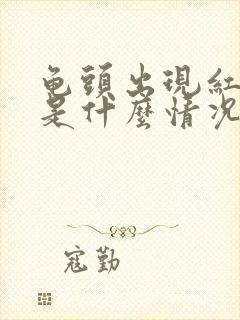 龟頭出現紅
是什麼情況
寇勤